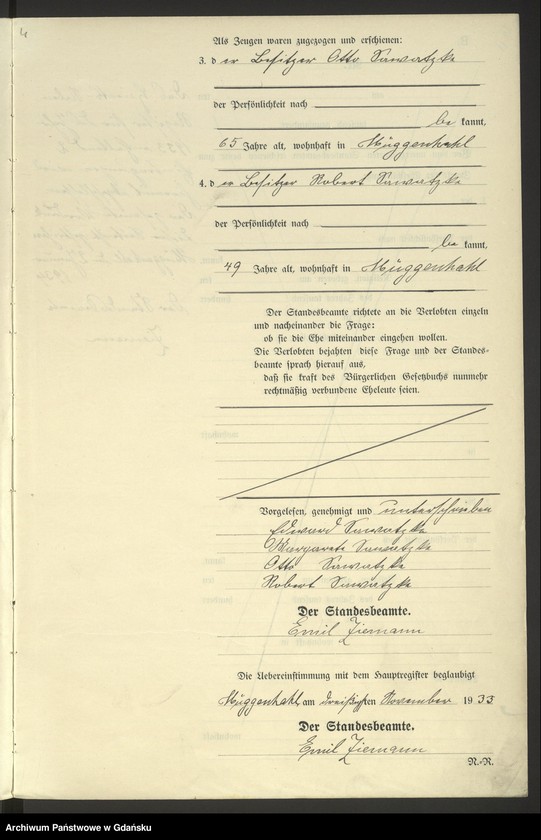 4
Als Zeugen waren zugezogen und erschienen:
3. der Besitzer Otto Sawatzke
der Persönlichkeit nach
bekannt,
65 Jahre alt, wohnhaft in Müggenhahl
4. der Besitzer Robert Sawatzke
der Persönlichkeit nach
bekannt,
49 Jahre alt, wohnhaft in Müggenhahl
Der Standesbeamte richtete an die Verlobten einzeln
und nacheinander die Frage:
ob sie die Ehe miteinander eingehen wollen.
Die Verlobten bejahten diese Frage und der Standes-
beamte sprach hierauf aus,
daß sie kraft des Bürgerlichen Gesetzbuchs nunmehr
rechtmäßig verbundene Eheleute seien.
Vorgelesen, genehmigt und unterschrieben
Edward Sawatzke
Margarete Sawatzke
Otto Sawatzke
Robert Sawatzke
Der Standesbeamte.
Emil Ziemann
Die Uebereinstimmung mit dem Hauptregister beglaubigt
Müggenhahl, am dreißigsten November 1933
Der Standesbeamte.
Emil Ziemann
N.-R.
Archiwum Państwowe w Gdańsku